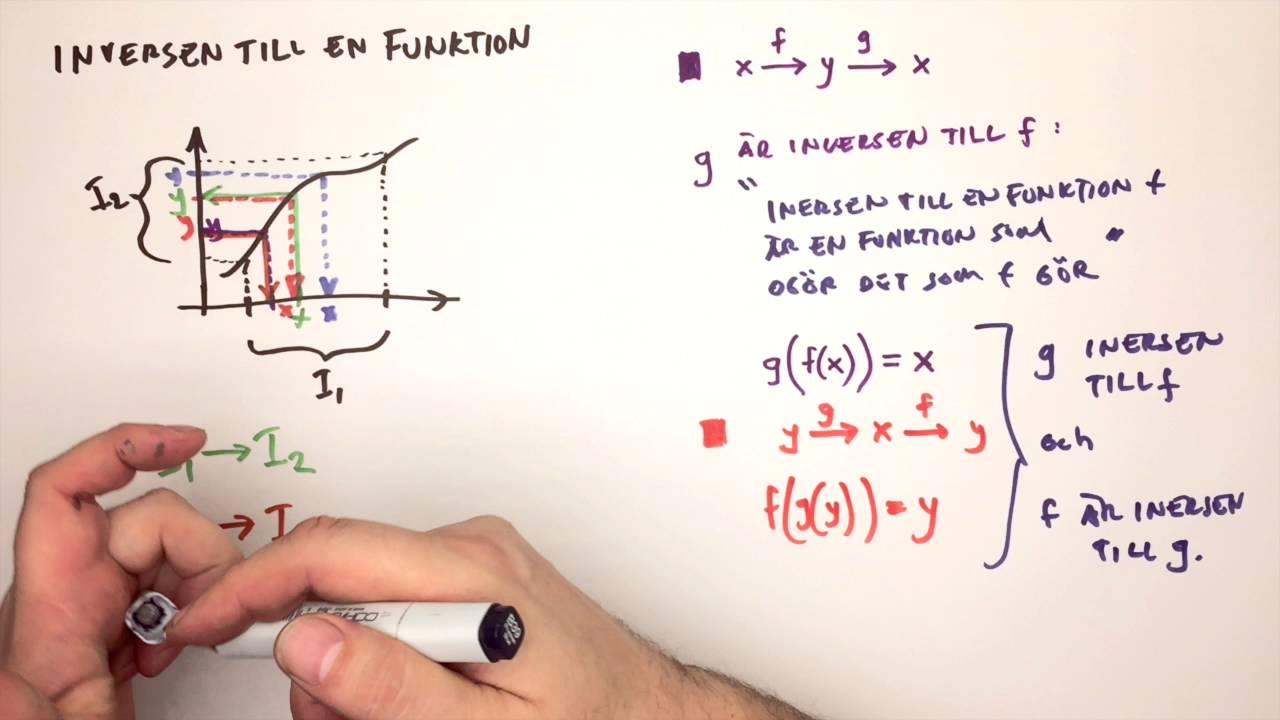 INVERSEN TILL EN FUNKTION
I₂
y
y
y
y
x
x
x
I₁
→ I₂
→ I
x f→ y g→ x
g ÄR INVERSEN TILL f:
"INERSEN TILL EN FUNKTION f
ÄR EN FUNKTION SOM
OGÖR DET SOM f GÖR"
g(f(x)) = x
y g→ x f→ y
f(g(y)) = y
g INERSEN
TILL f
och
f ÄR INERSEN
TILL g.